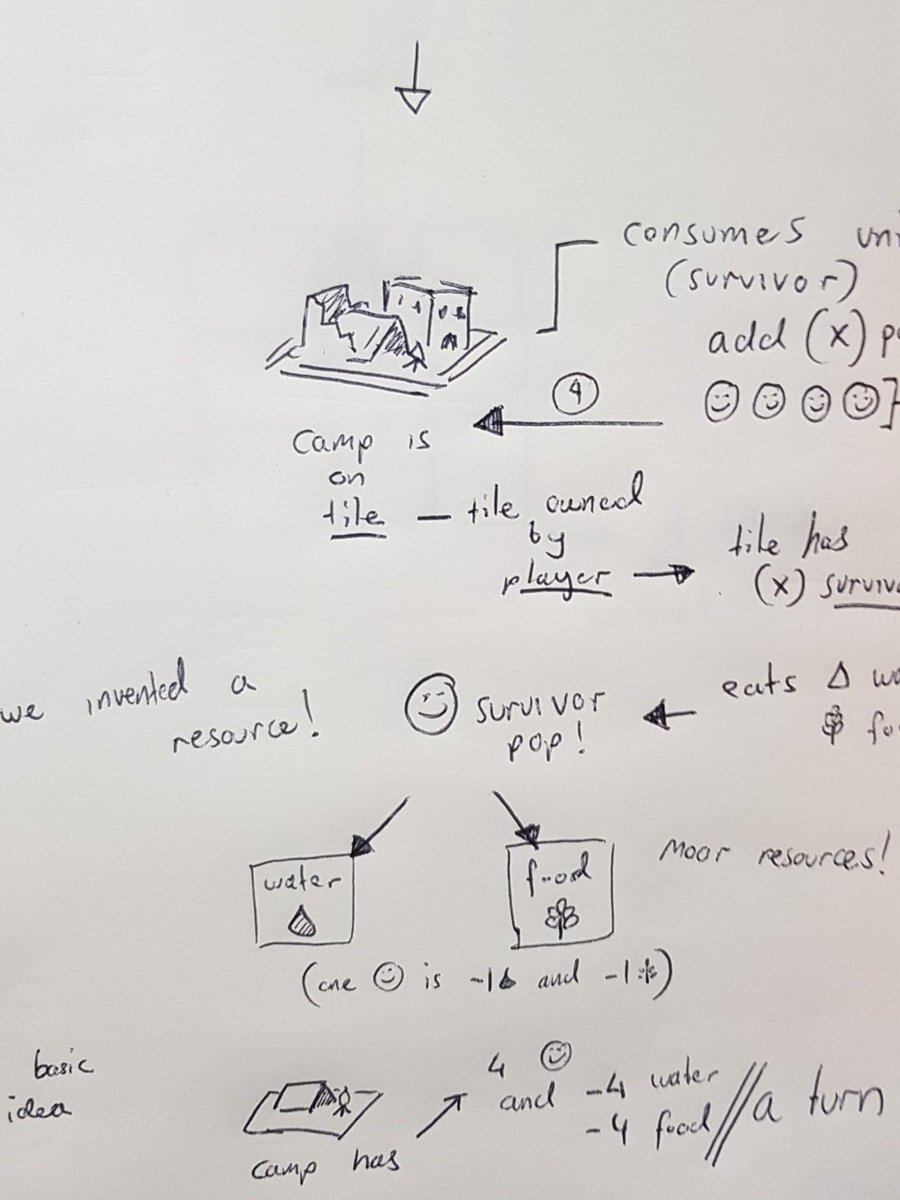 consumes
(survivor)
add (x)
4
camp is
on
tile — tile owned
by
player
tile has
(x)
we invented a
resource!
survivor
pop!
eats
Moar resources!
water
food
(one ☺ is -1 and -1)
basic
idea
camp has
4 ☺
and -4 water
-4 food // a turn